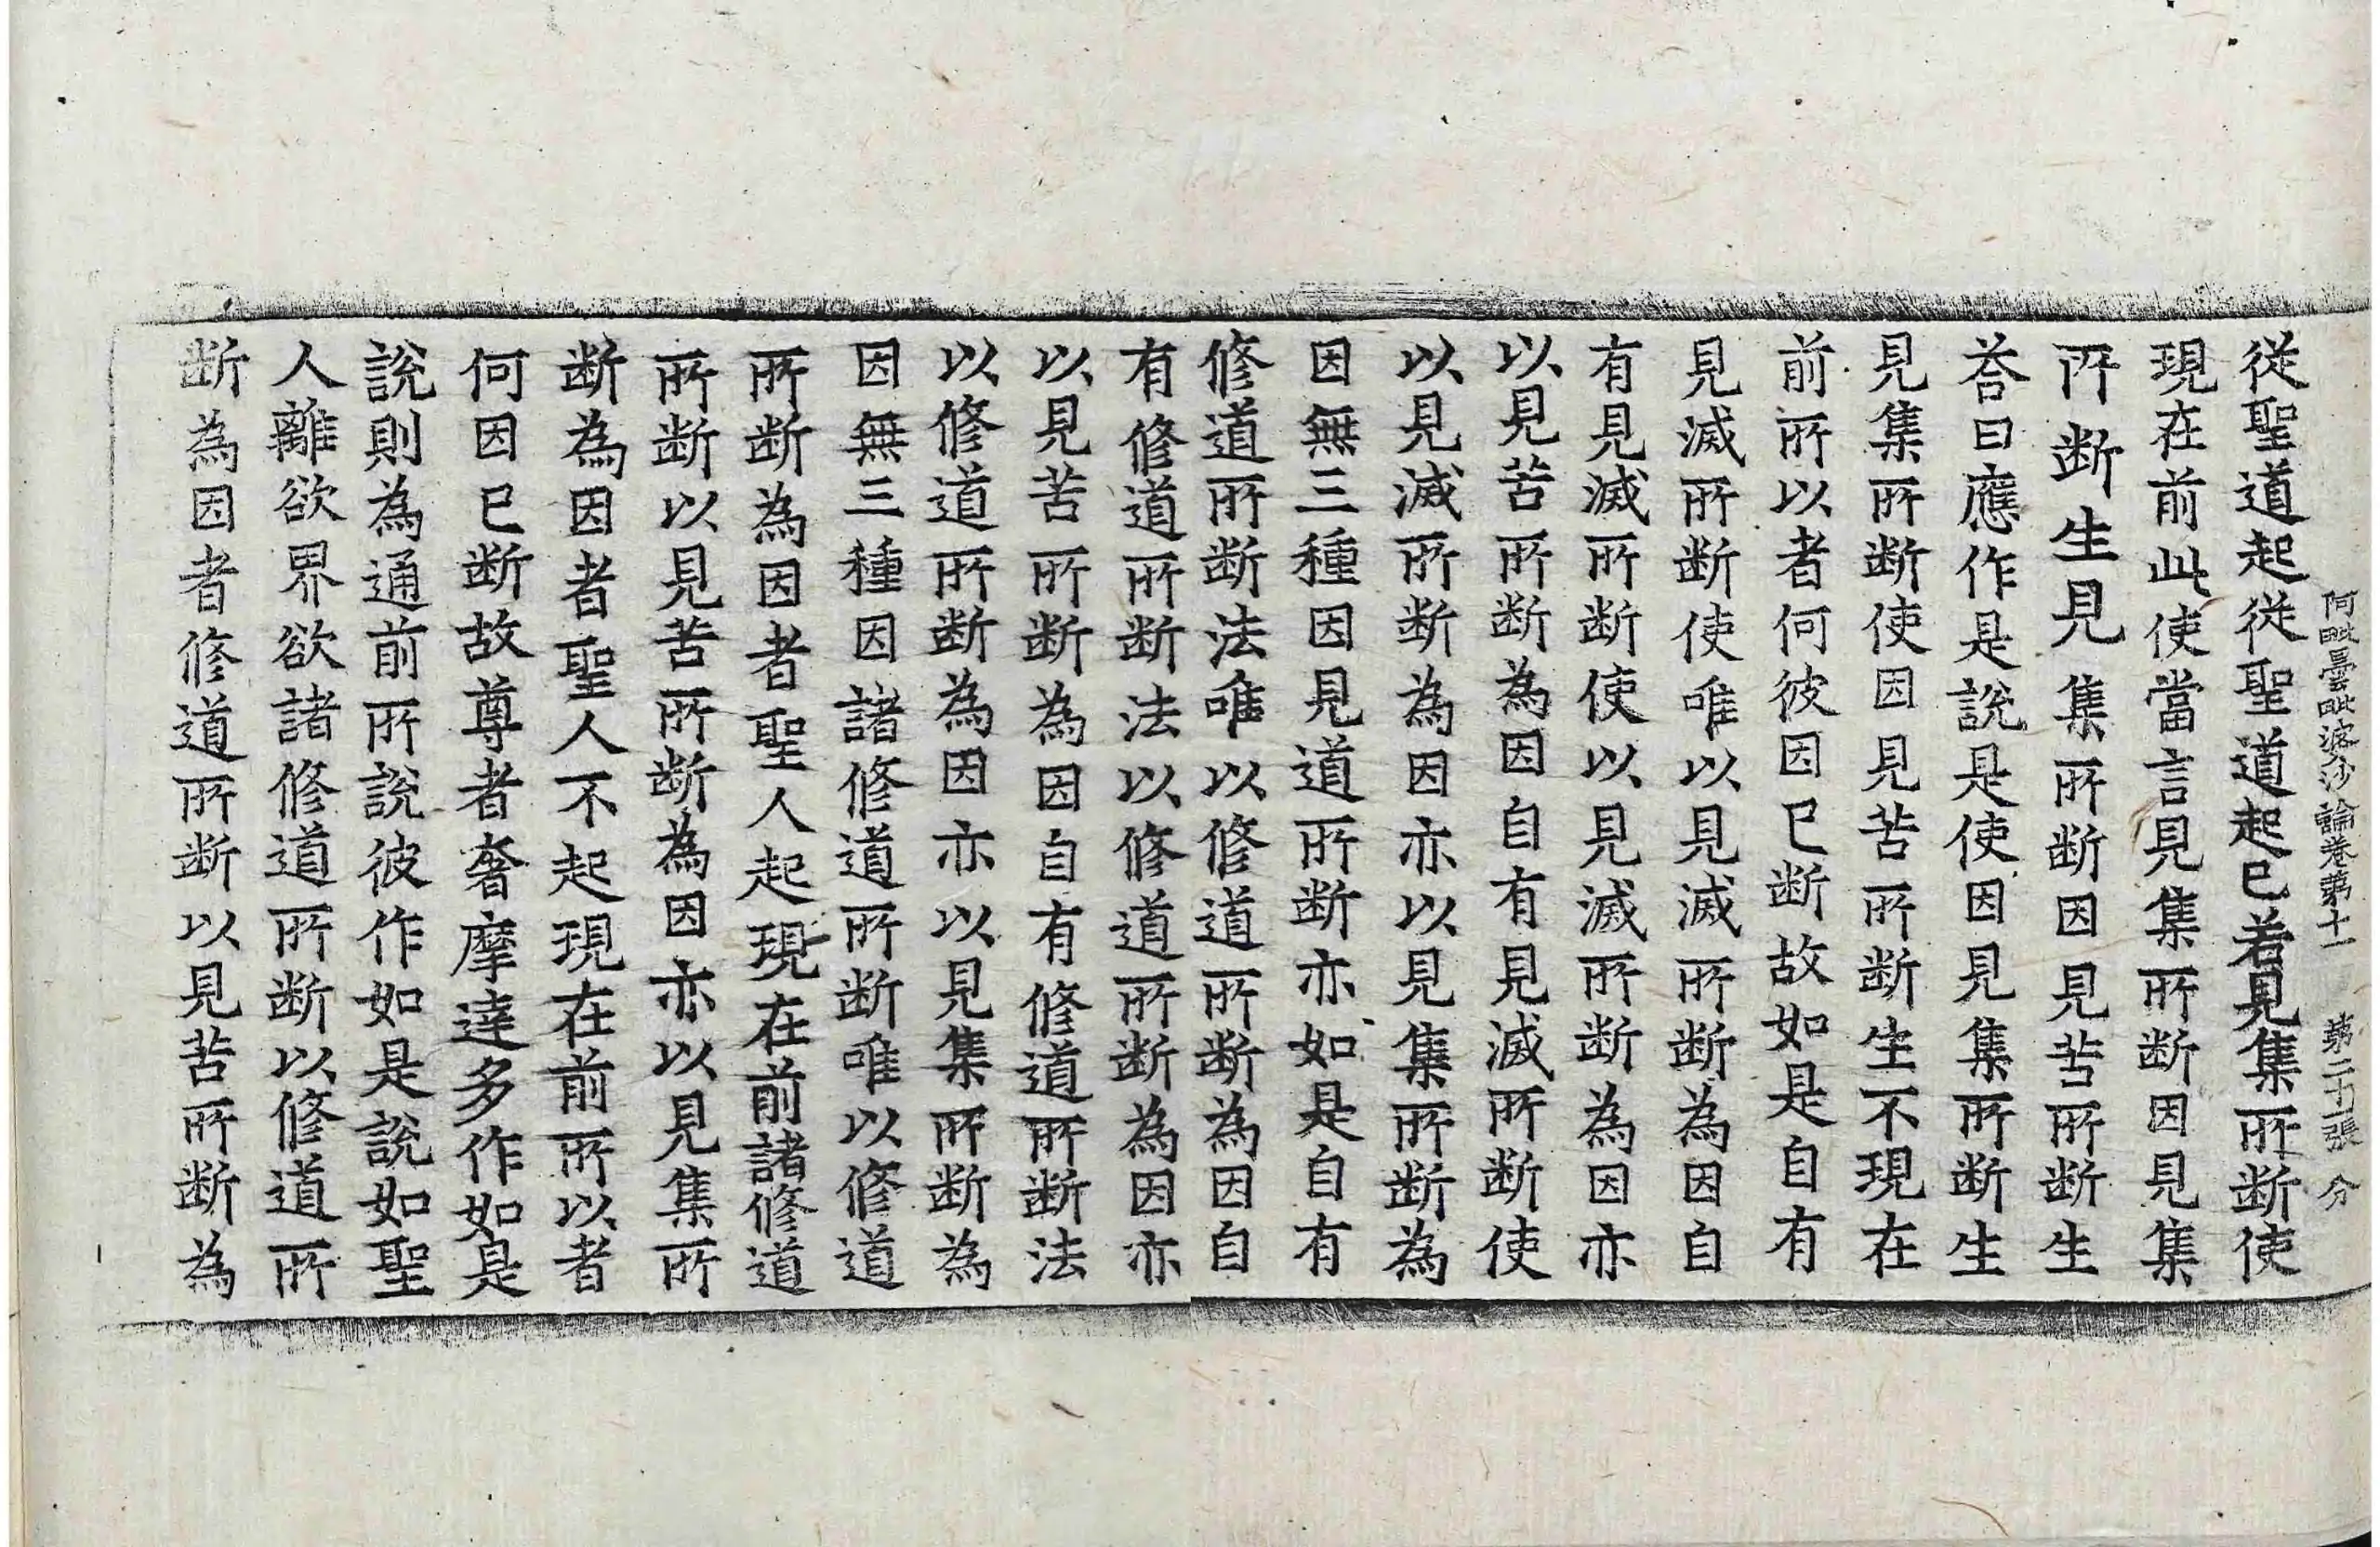 阿毗曇毗婆沙論卷第十一 第二十張 分
從聖道起從聖道起已着見集所断使
現在前此使當言見集所断因見集
所断生見集所断因見苦所断生
荅曰應作是說是使因見集所断生
見集所断使因見苦所断生不現在
前所以者何彼因已断故如是自有
見滅所断使唯以見滅所断為因自
有見滅所断使以見滅所断為因亦
以見苦所断為因自有見滅所断使
以見滅所断為因亦以見集所断為
因無三種因見道所断亦如是自有
修道所断法唯以修道所断為因自
有修道所断法以修道所断為因亦
以見苦所断為因自有修道所断法
以修道所断為因亦以見集所断為
因無三種因諸修道所断唯以修道
所断為因者聖人起現在前諸修道
所断以見苦所断為因亦以見集所
断為因者聖人不起現在前所以者
何因已断故尊者奢摩達多作如是
說則為通前所說彼作如是說如聖
人離欲界欲諸修道所断以修道所
断為因者修道所断以見苦所断為